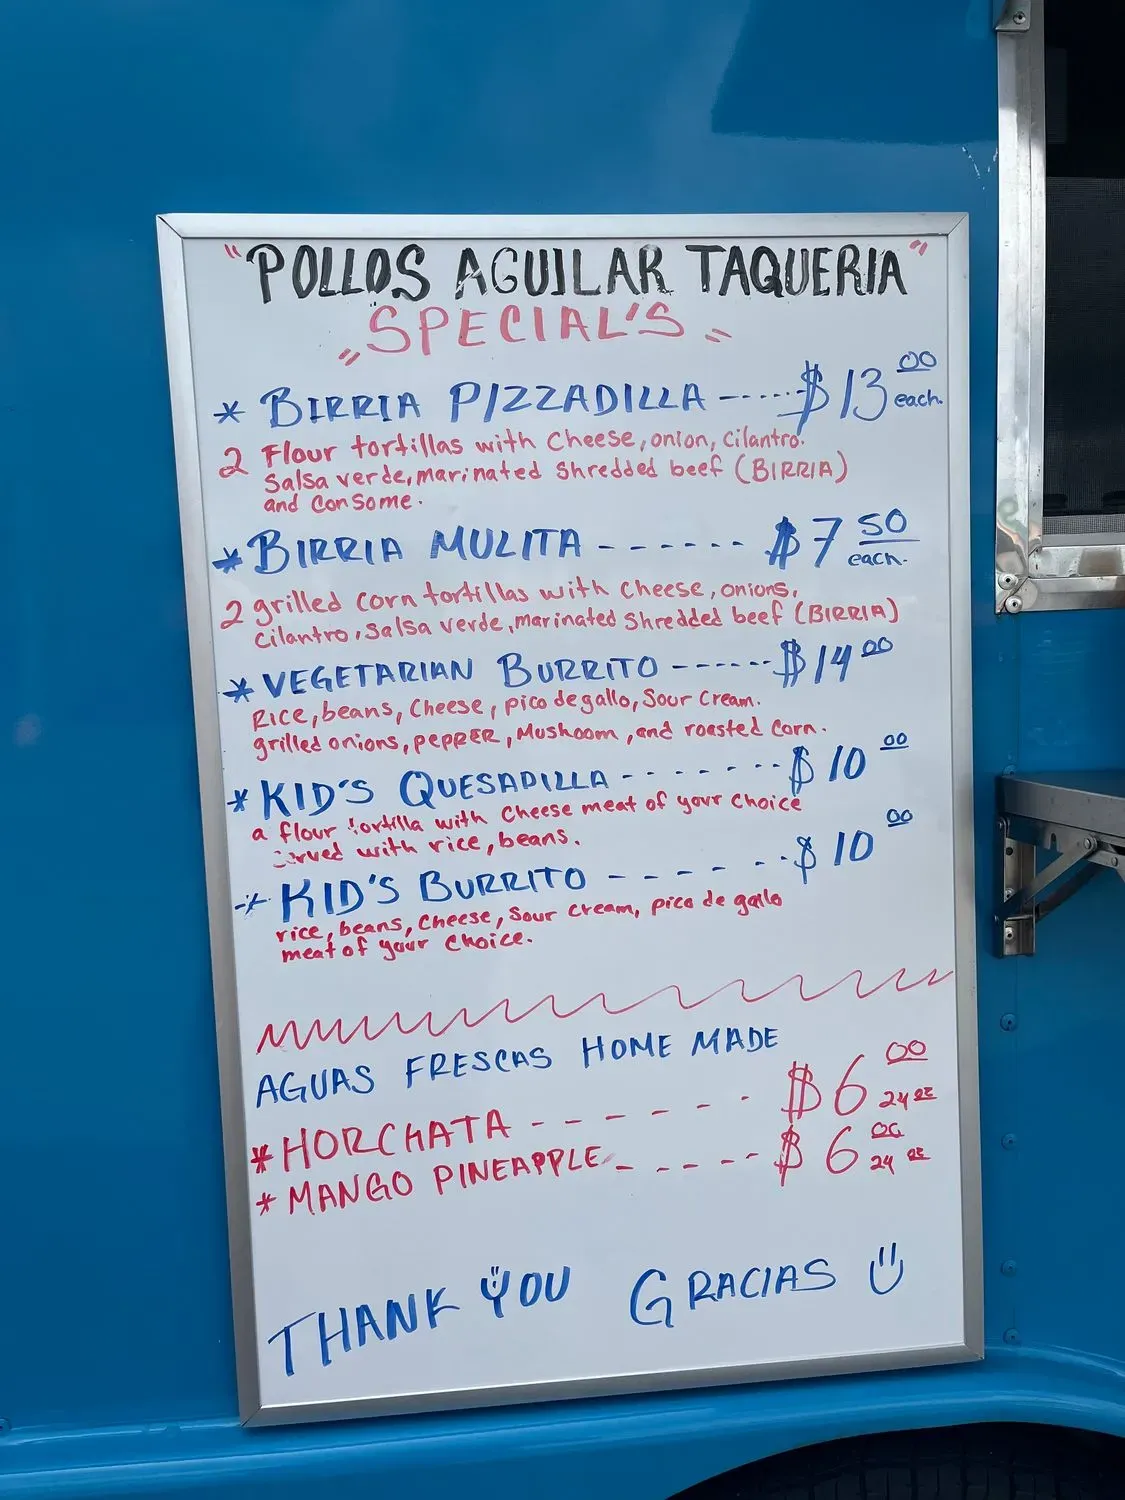 "POLLOS AGUILAR TAQUERIA"
"SPECIAL'S"
* BIRRIA PIZZADILLA ------ $13.00 each.
2 Flour tortillas with cheese, onion, cilantro.
Salsa verde, marinated shredded beef (BIRRIA)
and Consome.
* BIRRIA MULITA ------ $7 50 each.
2 grilled corn tortillas with cheese, onions,
cilantro, salsa verde, marinated shredded beef (BIRRIA)
* VEGETARIAN BURRITO ------ $14 00
Rice, beans, cheese, pico de gallo, Sour Cream.
grilled onions, pepper, Mushoom, and roasted corn.
* KID'S QUESADILLA ------- $10 00
a flour tortilla with cheese meat of your choice
served with rice, beans.
* KID'S BURRITO ------ $10 00
rice, beans, cheese, sour cream, pico de gallo
meat of your choice.
AGUAS FRESCAS HOME MADE
* HORCHATA ------ $6 00 24 oz
* MANGO PINEAPPLE ----- $6 00 24 oz
THANK YOU GRACIAS